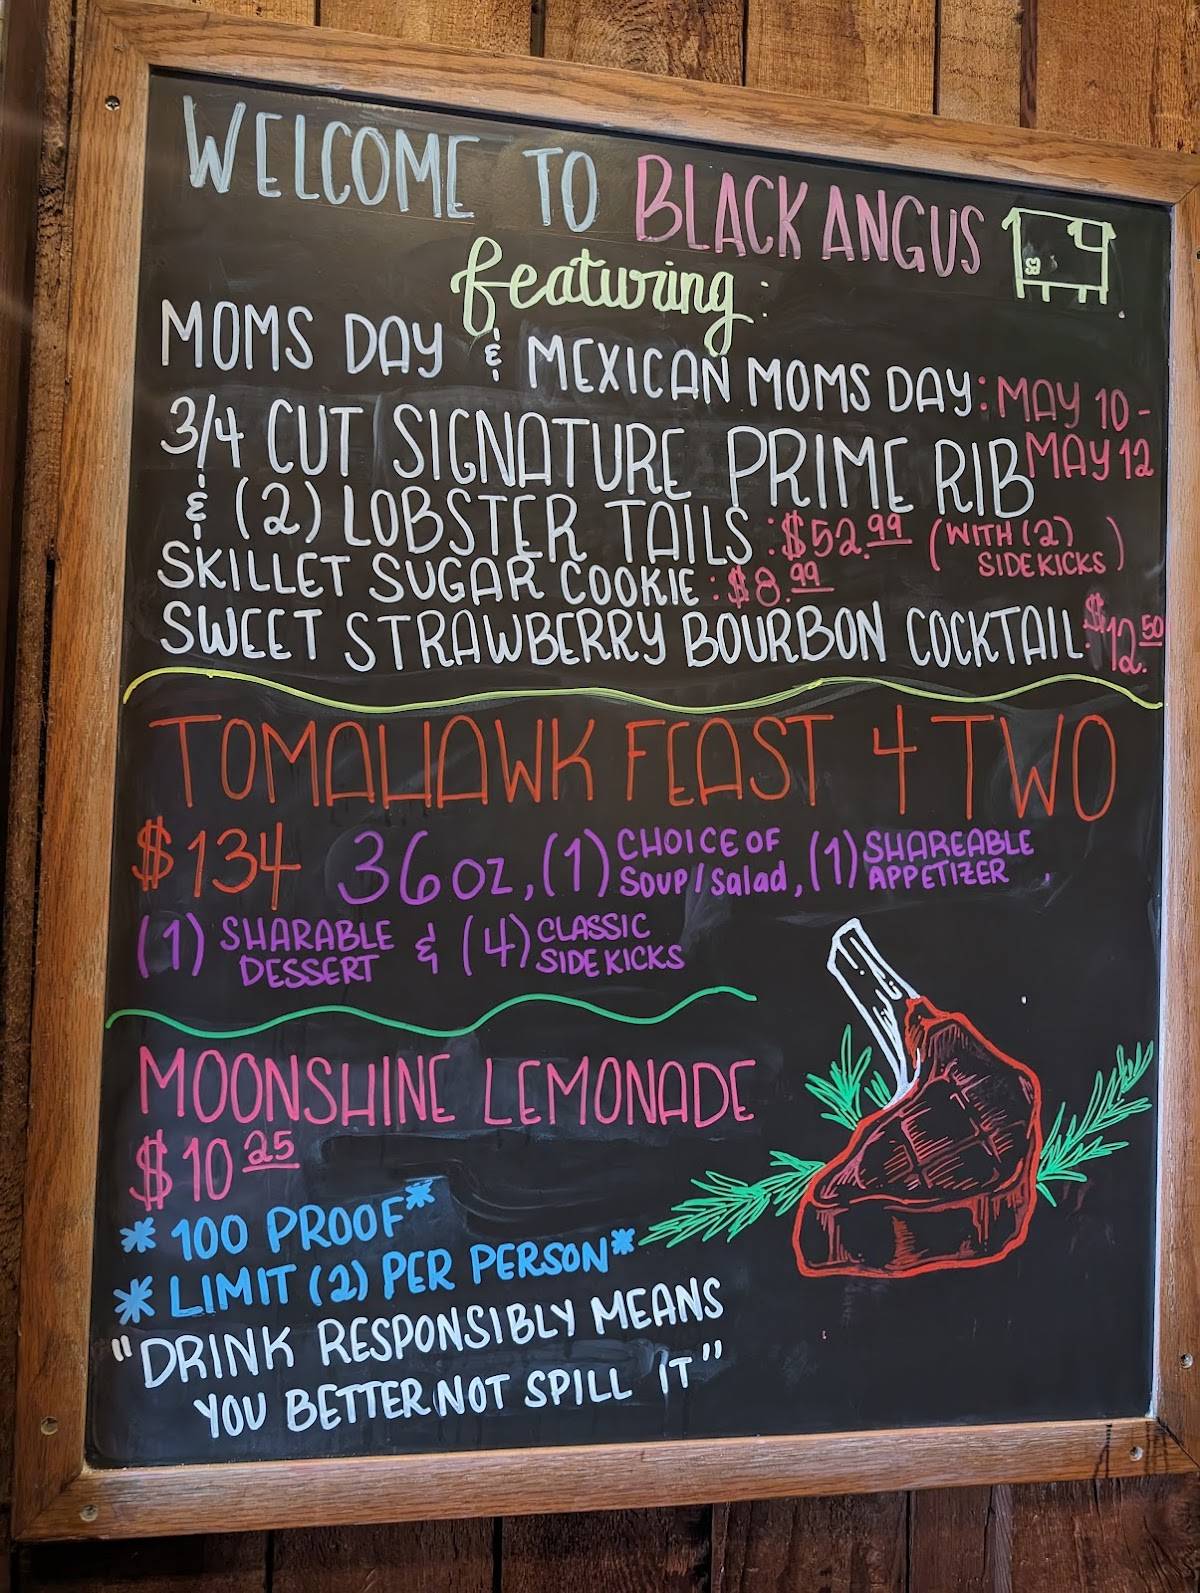 WELCOME TO BLACK ANGUS
featuring:
MOMS DAY & MEXICAN MOMS DAY: MAY 10 -
MAY 12
3/4 CUT SIGNATURE PRIME RIB
& (2) LOBSTER TAILS: $52.99 (WITH (2)
SIDEKICKS)
SKILLET SUGAR COOKIE: $8.99
SWEET STRAWBERRY BOURBON COCKTAIL: $12.50
TOMAHAWK FEAST 4 TWO
$134 36oz, (1) CHOICE OF
SOUP/Salad, (1) SHAREABLE
APPETIZER,
(1) SHARABLE
DESSERT & (4) CLASSIC
SIDEKICKS
MOONSHINE LEMONADE
$10 25
* 100 PROOF*
* LIMIT (2) PER PERSON*
"DRINK RESPONSIBLY MEANS
YOU BETTER NOT SPILL IT"